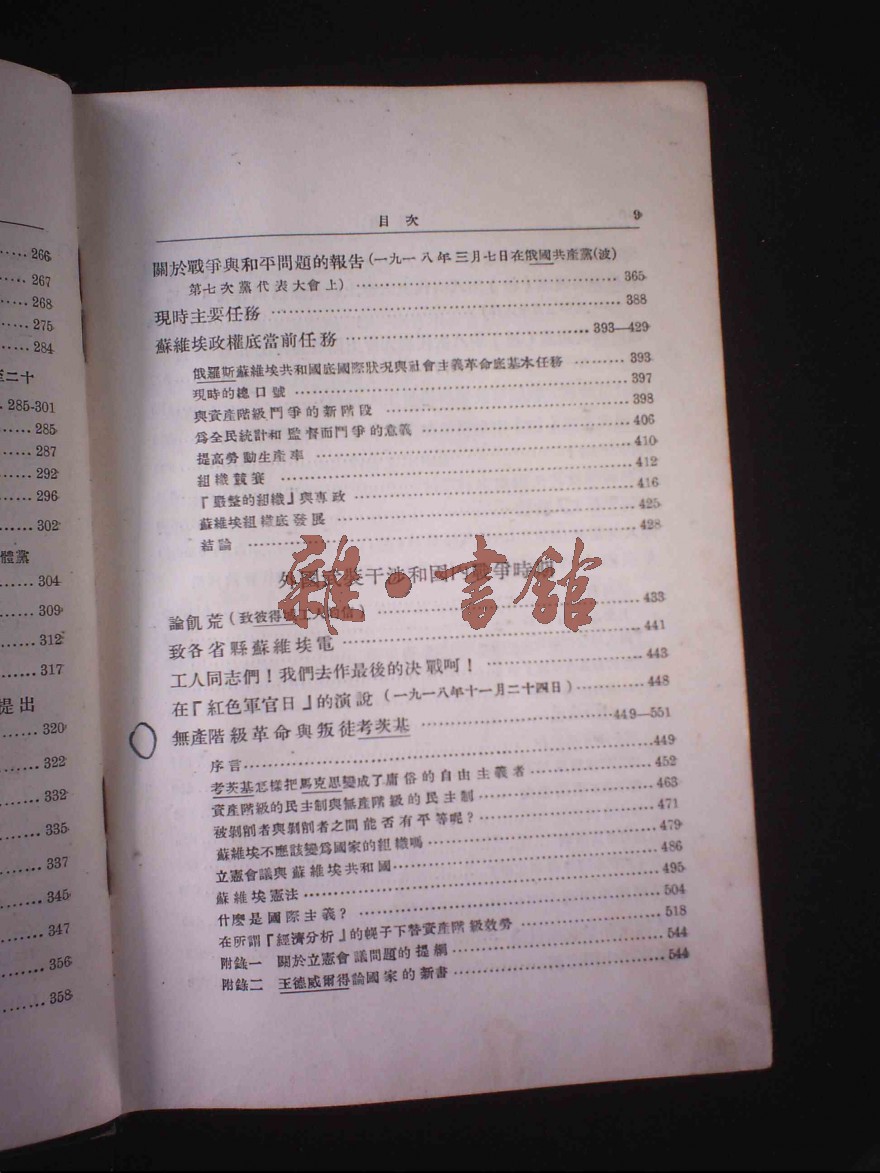 266
267
268
275
284
至二十
285-301
285
287
292
296
302
體黨
304
309
312
317
提出
320
322
332
335
337
345
347
356
358
目次 9
關於戰爭與和平問題的報告(一九一八年三月七日在俄國共產黨(波)
第七次黨代表大會上) 365
現時主要任務 388
蘇維埃政權底當前任務 393—429
俄羅斯蘇維埃共和國底國際狀況與社會主義革命底基本任務 393
現時的總口號 397
與資產階級鬥爭的新階段 398
爲全民統計和監督而鬥爭的意義 406
提高勞動生產率 410
組織競賽 412
『嚴整的組織』與專政 416
蘇維埃組織底發展 425
結論 428
外國武裝干涉和國內戰爭時期
雜·書館
論飢荒(致彼得城工人的信) 433
致各省縣蘇維埃電 441
工人同志們!我們去作最後的決戰呵! 443
在『紅色軍官日』的演說(一九一八年十一月二十四日) 448
無產階級革命與叛徒考茨基 449—551
序言 449
考茨基怎樣把馬克思變成了庸俗的自由主義者 452
資產階級的民主制與無產階級的民主制 463
被剝削者與剝削者之間能否有平等呢? 471
蘇維埃不應該變爲國家的組織嗎 479
立憲會議與蘇維埃共和國 486
蘇維埃憲法 495
什麼是國際主義? 504
在所謂『經濟分析』的幌子下替資產階級效勞 518
附錄一 關於立憲會議問題的提綱 544
附錄二 王德威爾得論國家的新書 544